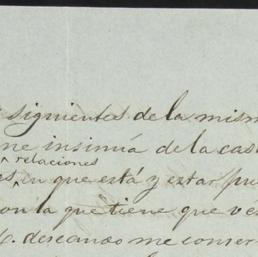 siguientes de la mism
ne insinúa de la cas
relaciones
en que está y estar pue
on la que tiene que ve
deseando me conser